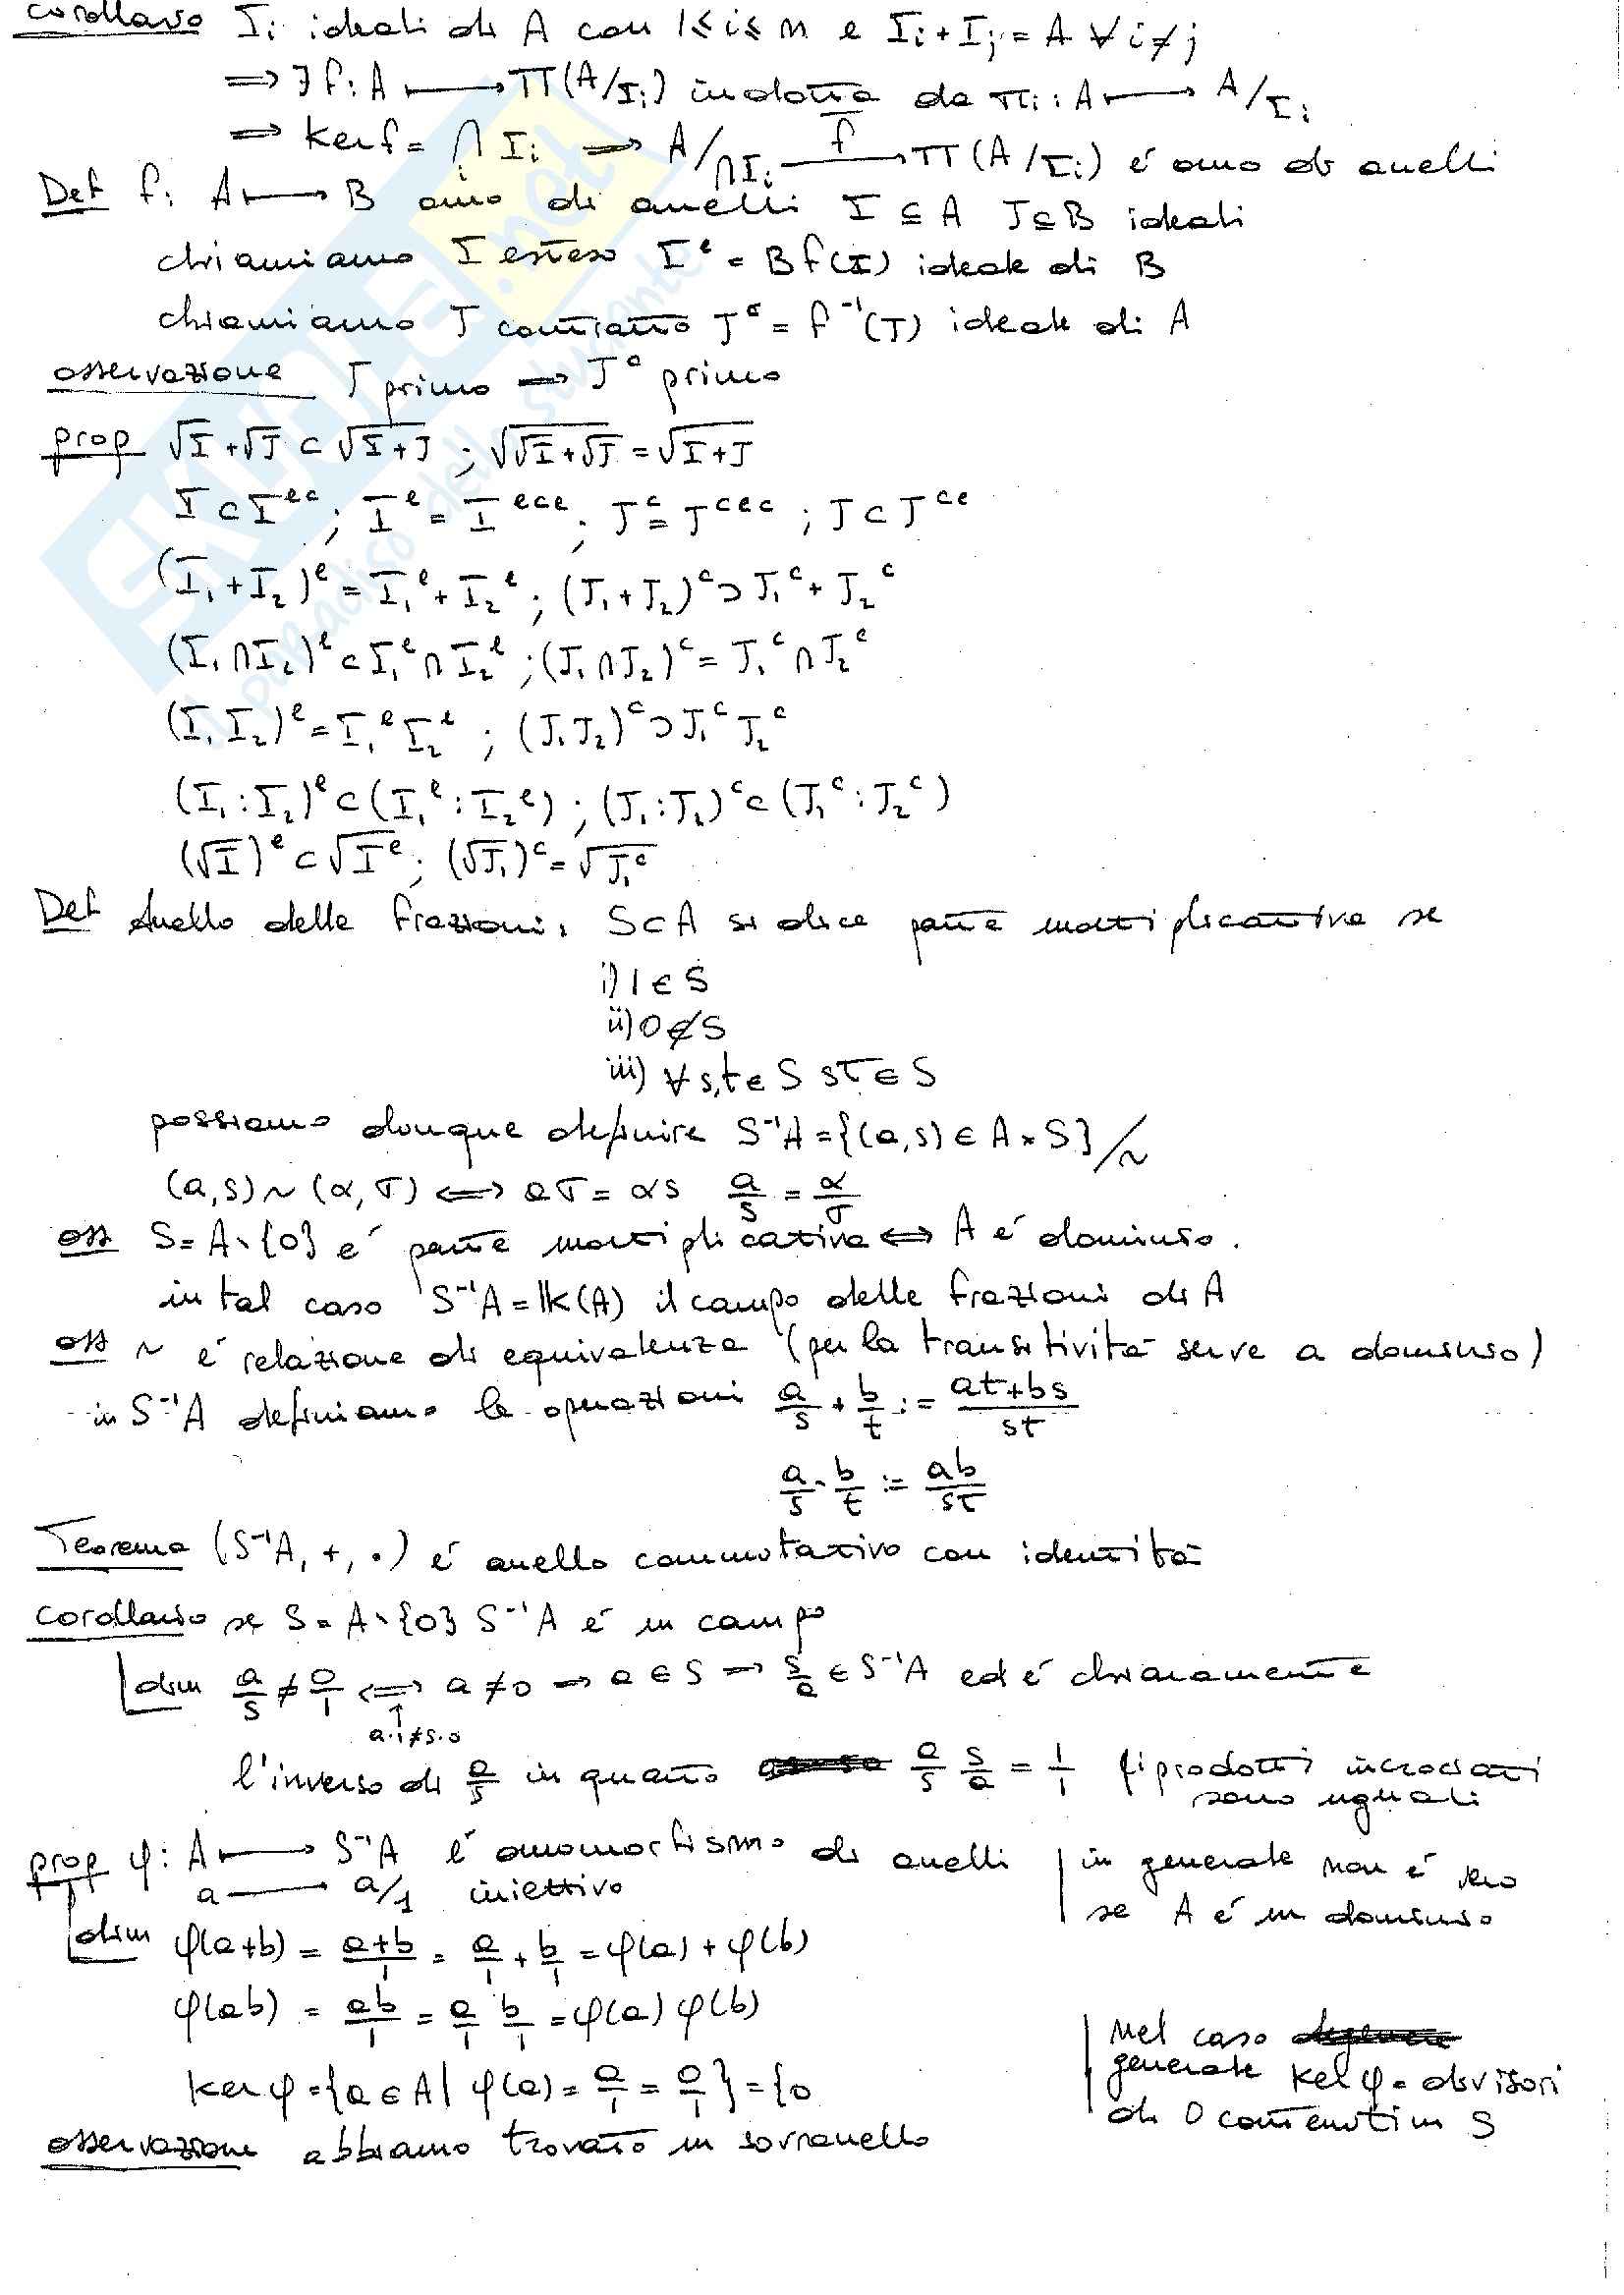 corollario I_i ideali di A con 1≤i≤n e I_i+I_j=A ∀i≠j
⟹ ∃f: A ⟼ Π(A/I_i) indotta da π_i: A ⟼ A/I_i
⟹ kerf = ∩_i I_i ⟹ A/∩I_i —f̄→ Π(A/I_i) é omo di anelli
Def f: A ⟼ B omo di anelli I ⊆ A J ⊆ B ideali
chiamiamo I esteso I^e = Bf(I) ideale di B
chiamiamo J contratto J^c = f^-1(J) ideale di A
osservazione J primo ⟹ J^c primo
prop √I+√J ⊂ √(I+J) ; √(√I+√J) = √(I+J)
I ⊂ I^ec ; I^e = I^ece ; J^c = J^cec ; J ⊂ J^ce
(I_1+I_2)^e = I_1^e+I_2^e ; (J_1+J_2)^c ⊃ J_1^c+J_2^c
(I_1∩I_2)^e ⊂ I_1^e∩I_2^e ; (J_1∩J_2)^c = J_1^c∩J_2^c
(I_1I_2)^e = I_1^e I_2^e ; (J_1J_2)^c ⊃ J_1^c J_2^c
(I_1:I_2)^e ⊂ (I_1^e:I_2^e) ; (J_1:J_2)^c ⊂ (J_1^c:J_2^c)
(√I)^e ⊂ √(I^e) ; (√J_1)^c = √(J_1^c)
Def Anello delle frazioni: S⊂A si dice parte moltiplicativa se
i) 1 ∈ S
ii) 0 ∉ S
iii) ∀ s,t ∈ S st ∈ S
possiamo dunque definire S^-1A = {(a,s) ∈ A×S}/~
(a,s) ~ (α,σ) ⟺ aσ = αs a/s = α/σ
oss S = A∖{0} é parte moltiplicativa ⟺ A é dominio.
in tal caso S^-1A = 𝕂(A) il campo delle frazioni di A
oss ~ é relazione di equivalenza (per la transitività serve a dominio)
in S^-1A definiamo le operazioni a/s + b/t := (at+bs)/st
a/s · b/t := ab/st
Teorema (S^-1A, +, ·) é anello commutativo con identità
corollario se S = A∖{0} S^-1A é un campo
dim a/s ≠ 0/1 ⟺ a≠0 ⟹ a ∈ S ⟹ s/a ∈ S^-1A ed é chiaramente
↑
a·1≠s·0
l'inverso di a/s in quanto a/s s/a = 1/1 (i prodotti incrociati
sono uguali
prop φ: A ⟼ S^-1A é omomorfismo di anelli | in generale non é vero
a ⟶ a/1 iniettivo
se A é un dominio
dim φ(a+b) = (a+b)/1 = a/1 + b/1 = φ(a) + φ(b)
φ(ab) = ab/1 = a/1 b/1 = φ(a) φ(b)
Nel caso
generale kerφ = divisori
ker φ = {a ∈ A | φ(a) = a/1 = 0/1} = {0
di 0 contenuti in S
osservazione abbiamo trovato un sovranello